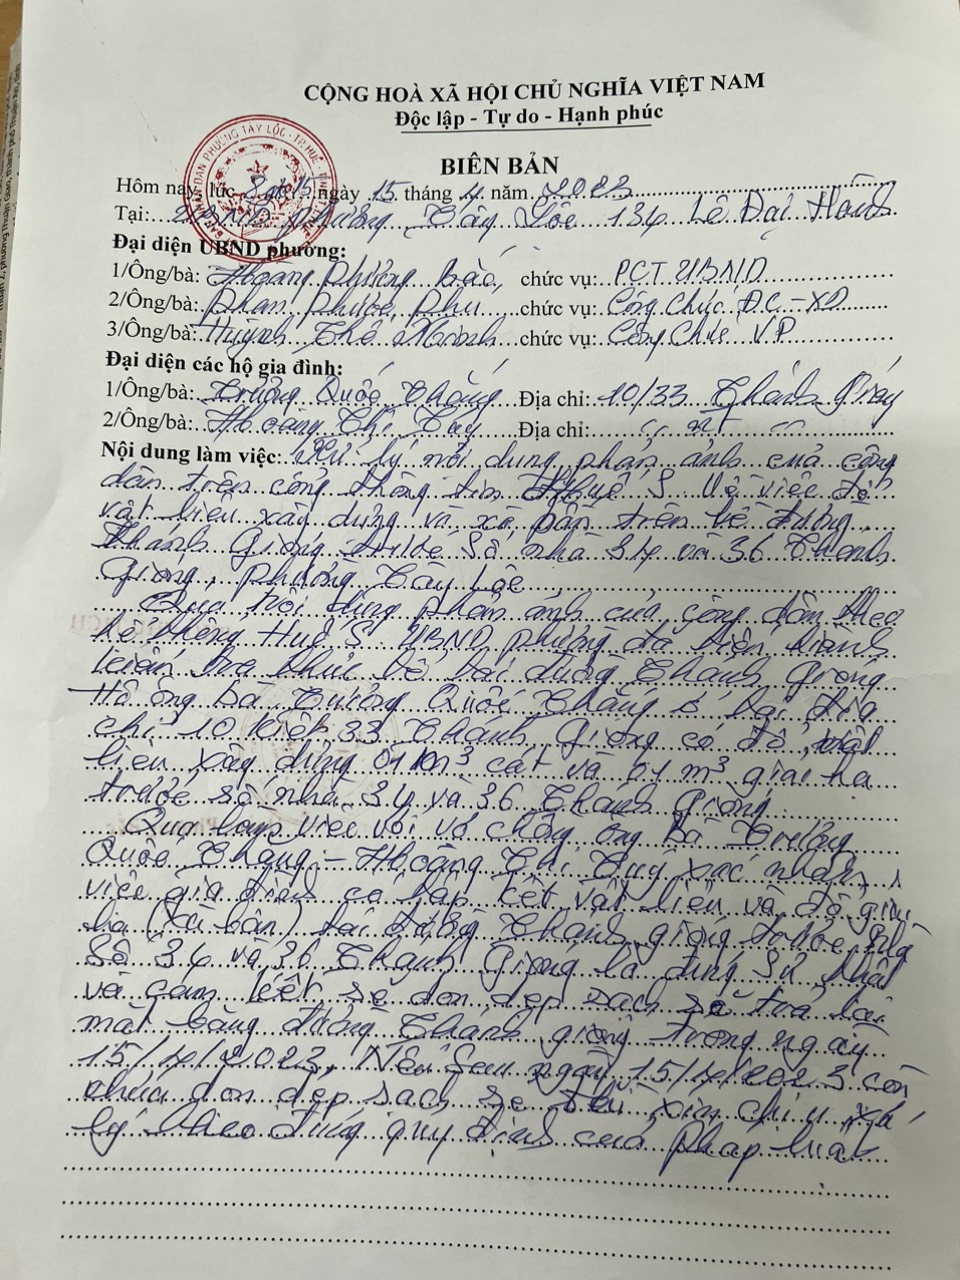 CỘNG HOÀ XÃ HỘI CHỦ NGHĨA VIỆT NAM
Độc lập - Tự do - Hạnh phúc
BIÊN BẢN
Hôm nay, lúc 8 giờ 15 ngày 15 tháng 4 năm 2023
Tại: UBND phường Tây Lộc 134 Lê Đại Hành
Đại diện UBND phường:
1/Ông/bà: Hoàng Phương Bảo, chức vụ: PCT UBND
2/Ông/bà: Phan Phước Phú chức vụ: Công chức ĐC-XD
3/Ông/bà: Huỳnh Thế chức vụ: Công Chức VP
Đại diện các hộ gia đình:
1/Ông/bà: Trương Quốc Thắng Địa chỉ: 10/33 Thánh Gióng
2/Ông/bà: Hoàng Thị Túy Địa chỉ: " nt "
Nội dung làm việc: Xử lý nội dung phản ánh của công
dân trên cổng thông tin Huế S về việc đổ
vật liệu xây dựng và xà bần trên vỉa đường
Thánh Gióng trước số nhà 34 và 36 Thánh
Gióng, phường Tây Lộc
Qua nội dung phản ánh của công dân theo
hệ thống Huế S UBND phường đã tiến hành
kiểm tra thực tế tại đường Thánh Gióng
Hộ ông bà Trương Quốc Thắng ở tại địa
chỉ 10 kiệt 33 Thánh Gióng có đổ vật
liệu xây dựng 01 m3 cát và 01 m3 giai hạ
trước số nhà 34 và 36 Thánh Gióng
Qua làm việc với vợ chồng ông bà Trương
Quốc Thắng - Hoàng Thị Túy xác nhận
việc gia đình có tập kết vật liệu và đổ giai
hạ (xà bần) tại đường Thánh Gióng trước nhà
số 34 và 36 Thánh Gióng là đúng sự thật
và cam kết sẽ dọn dẹp sạch sẽ trả lại
mặt bằng đường Thánh Gióng trong ngày
15/4/2023. Nếu sau ngày 15/4/2023 còn
chưa dọn dẹp sạch sẽ thì xin chịu xử
lý theo đúng quy định của pháp luật